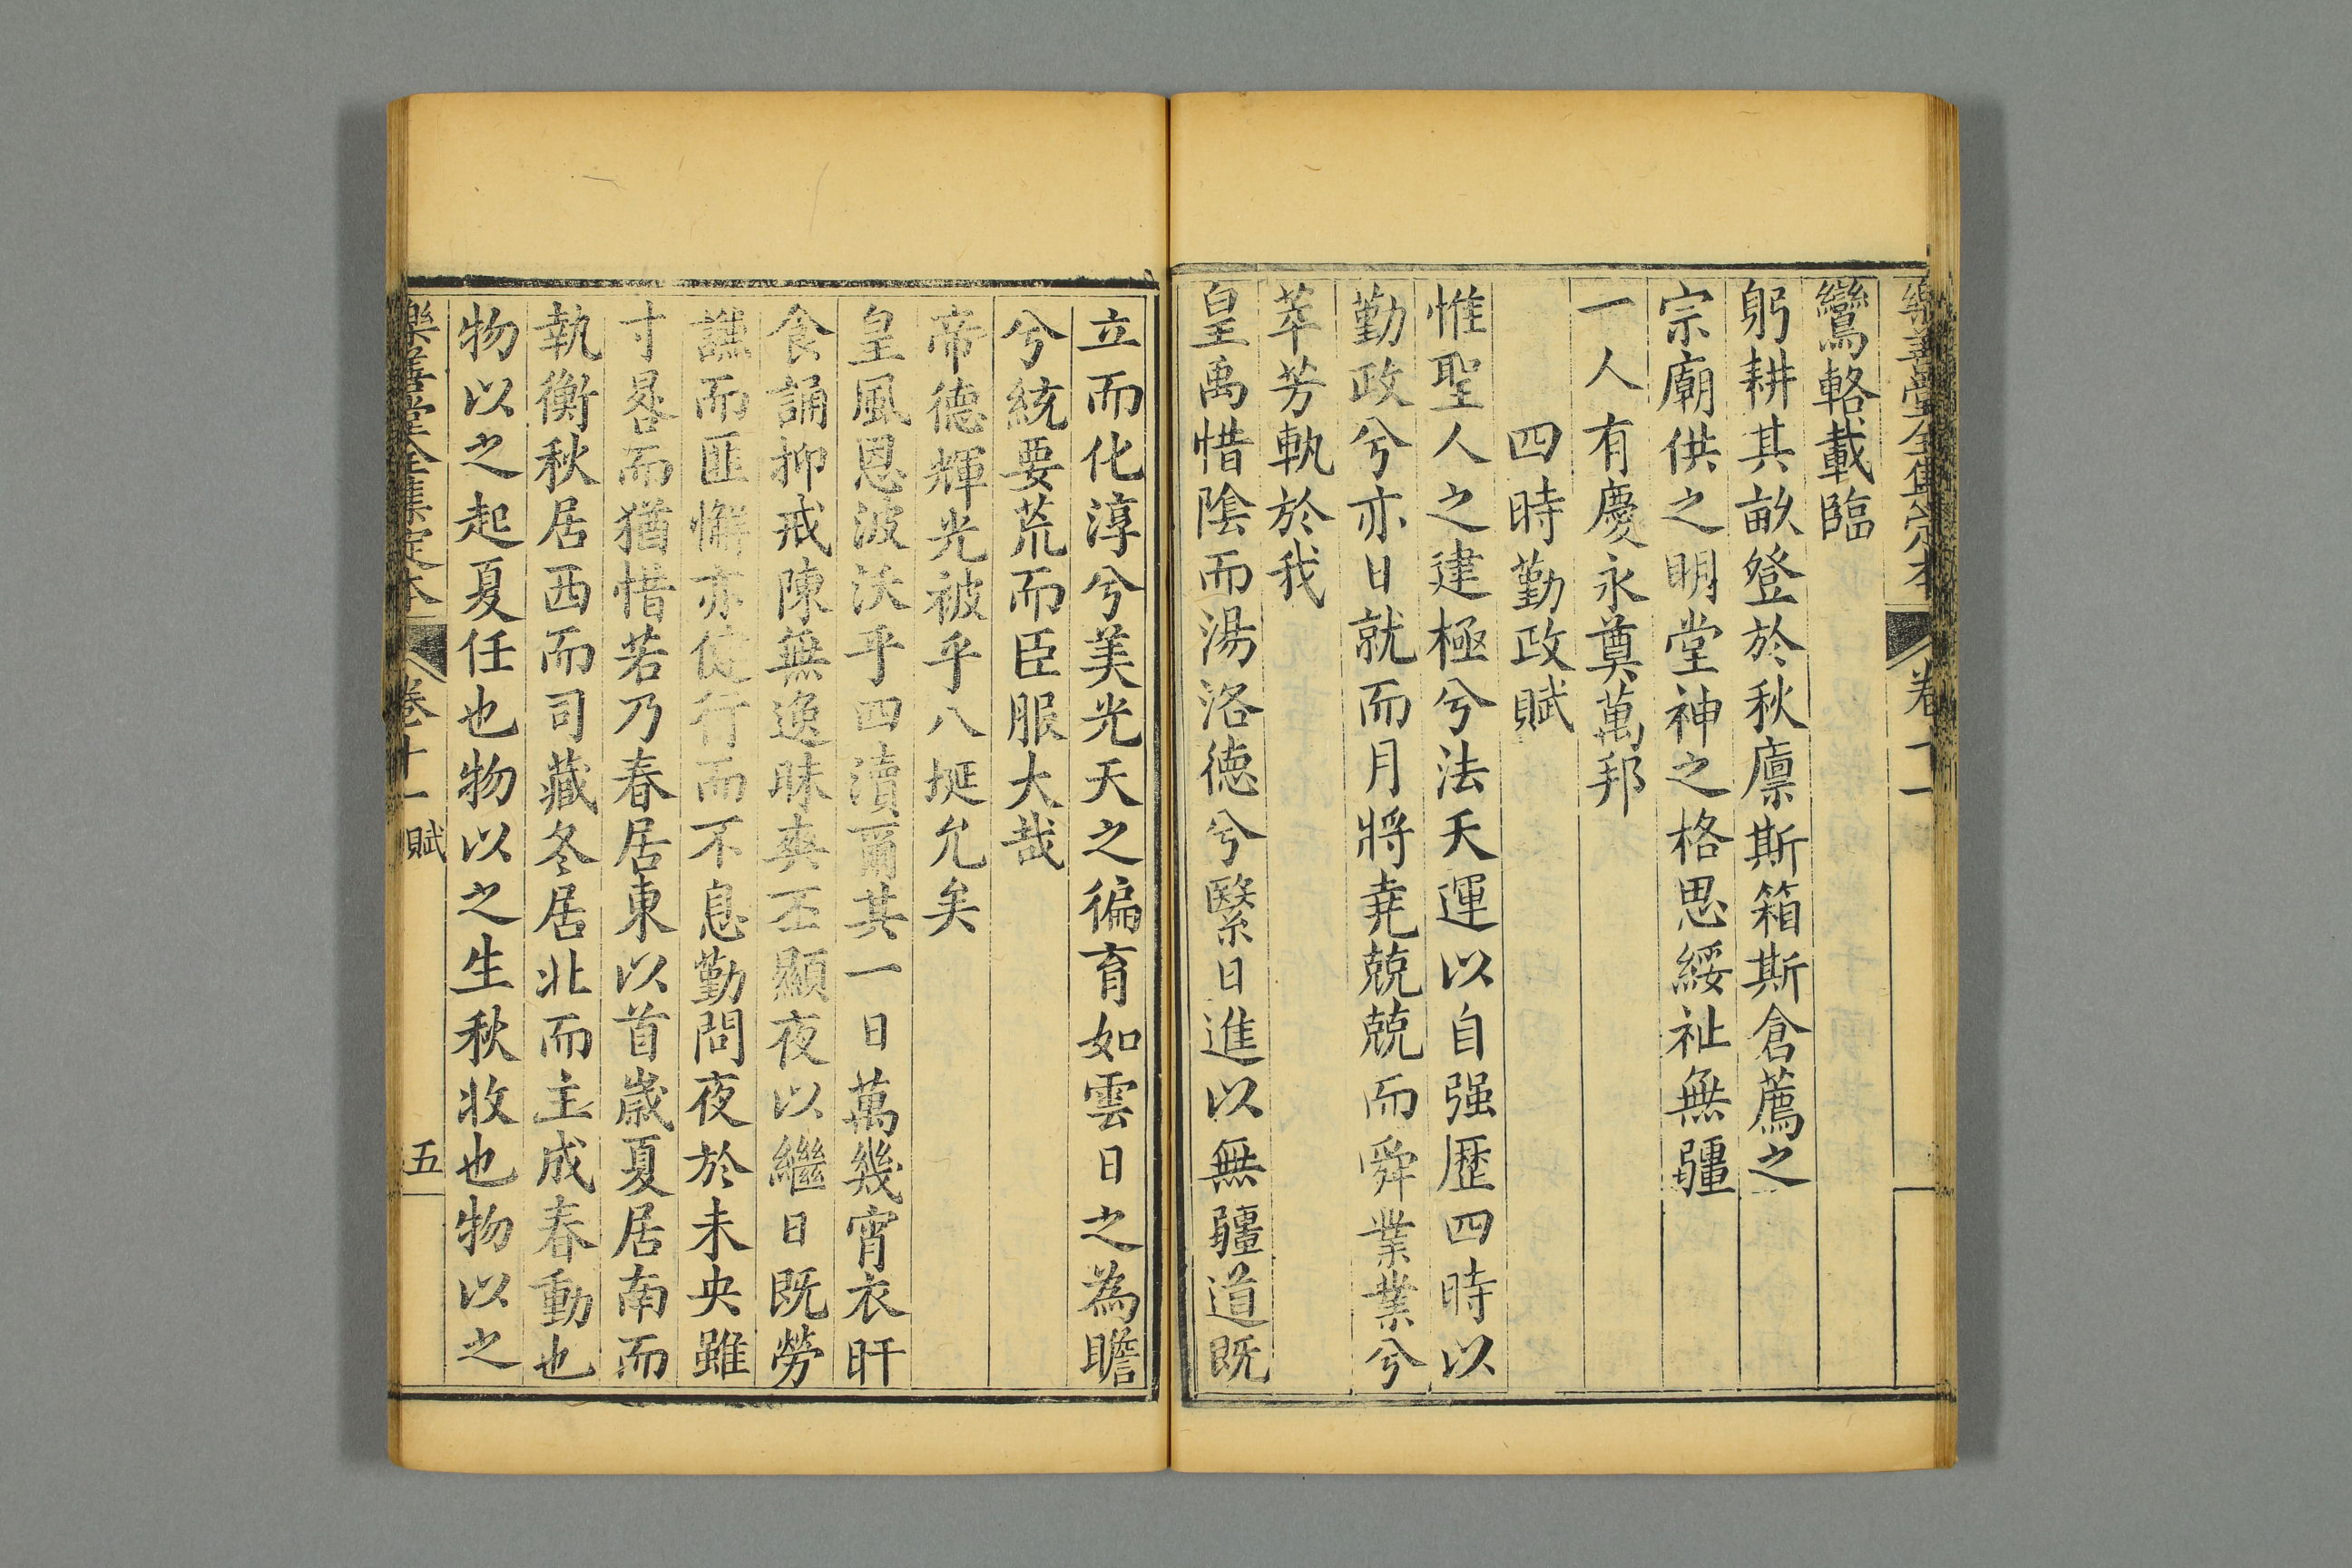 樂善堂全集定本 卷十一
鸞輅載臨
躬耕其畝登於秋廩斯箱斯倉薦之
宗廟供之明堂神之格思綏祉無疆
一人有慶永奠萬邦
四時勤政賦
惟聖人之建極兮法天運以自强歷四時以
勤政兮亦日就而月將堯兢兢而舜業業兮
萃芳軌於我
皇禹惜陰而湯洛德兮繄日進以無疆道既
立而化淳兮美光天之徧育如雲日之為瞻
兮統要荒而臣服大哉
帝德輝光被乎八埏允矣
皇風恩波沃乎四瀆爾其一日萬幾宵衣旰
食誦抑戒陳無逸昧爽丕顯夜以繼日既勞
謙而匪懈亦健行而不息勤問夜於未央雖
寸晷而猶惜若乃春居東以首歲夏居南而
執衡秋居西而司藏冬居北而主成春動也
物以之起夏任也物以之生秋收也物以之
樂善堂全集定本 卷十一 賦 五